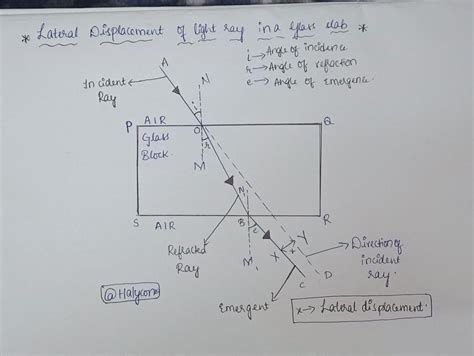 * Lateral Displacement of light ray in a glass slab *
i → Angle of incidence
r → Angle of refraction
e → Angle of Emergence.
A
N
Incident
Ray
i
P
AIR
O
Q
Glass
Block.
r
M
N₁
S
AIR
B
e
R
M₁
X
x
Y
Refracted
Ray
Direction of
incident
ray.
C
D
@Halycon
Emergent
x → Lateral displacement.